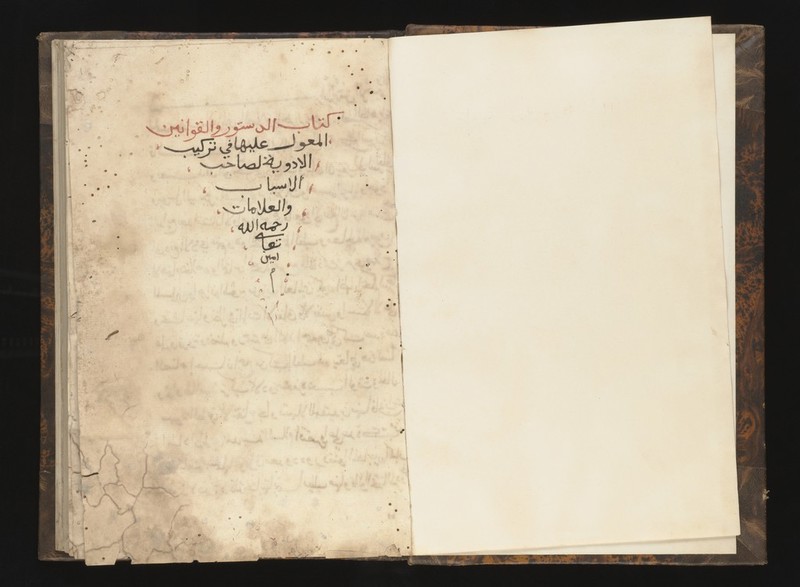 كتاب الدستور والقوانين
المعول عليها في تركيب
الادوية لصاحب
الاسباب
والعلامات
رحمه الله
تعالى
امين
م